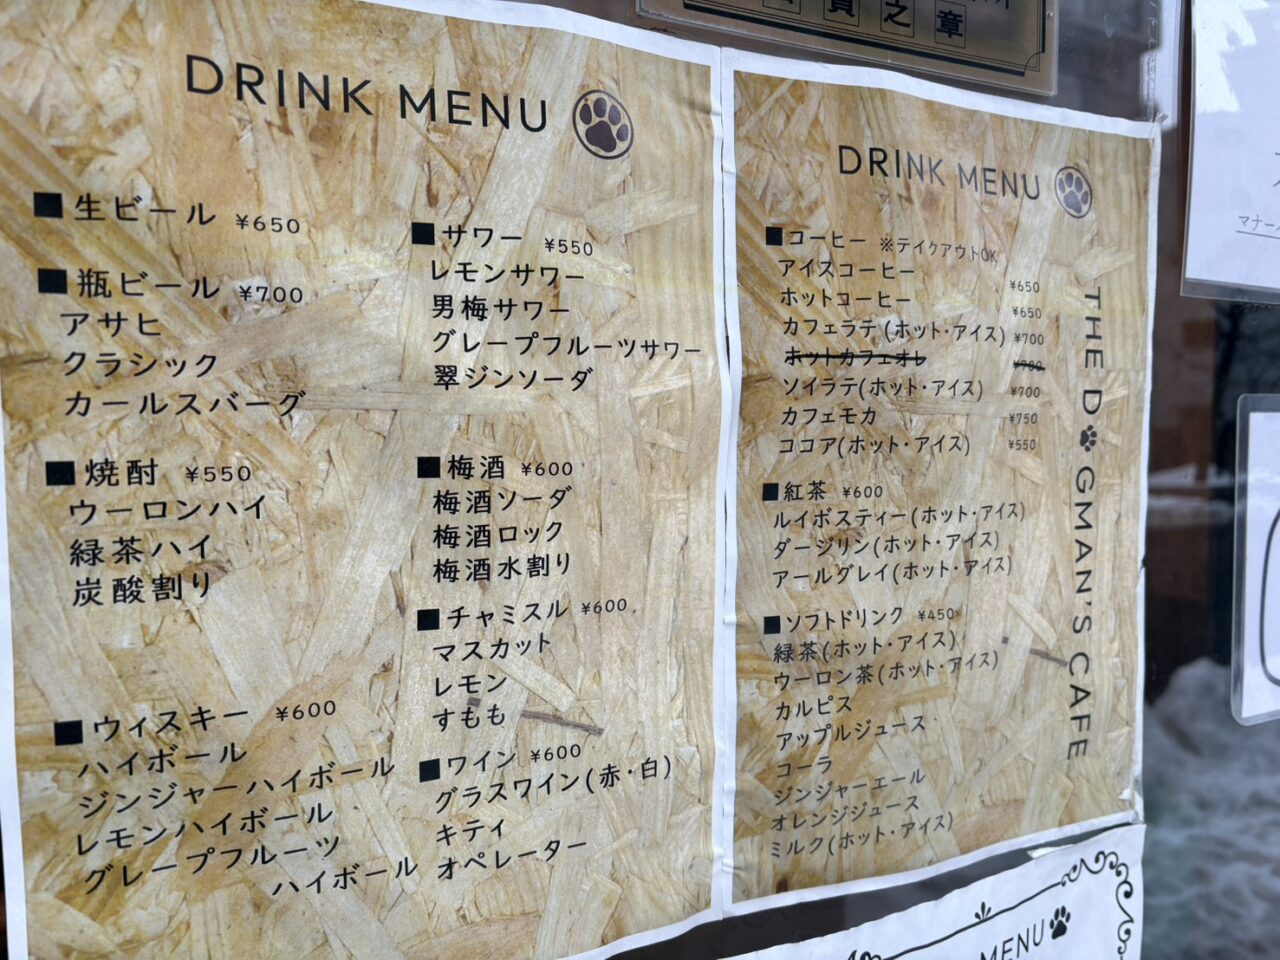 賞之章
DRINK MENU
■生ビール ¥650
■瓶ビール ¥700
アサヒ
クラシック
カールスバーグ
■焼酎 ¥550
ウーロンハイ
緑茶ハイ
炭酸割り
■ウィスキー ¥600
ハイボール
ジンジャーハイボール
レモンハイボール
グレープフルーツ
ハイボール
■サワー ¥550
レモンサワー
男梅サワー
グレープフルーツサワー
翠ジンソーダ
■梅酒 ¥600
梅酒ソーダ
梅酒ロック
梅酒水割り
■チャミスル ¥600
マスカット
レモン
すもも
■ワイン ¥600
グラスワイン(赤・白)
キティ
オペレーター
DRINK MENU
■コーヒー ※テイクアウトOK
アイスコーヒー ¥650
ホットコーヒー ¥650
カフェラテ(ホット・アイス) ¥700
ホットカフェオレ ¥700
ソイラテ(ホット・アイス) ¥700
カフェモカ ¥750
ココア(ホット・アイス) ¥550
■紅茶 ¥600
ルイボスティー(ホット・アイス)
ダージリン(ホット・アイス)
アールグレイ(ホット・アイス)
■ソフトドリンク ¥450
緑茶(ホット・アイス)
ウーロン茶(ホット・アイス)
カルピス
アップルジュース
コーラ
ジンジャーエール
オレンジジュース
ミルク(ホット・アイス)
THE DOGMAN'S CAFE
マナー
MENU